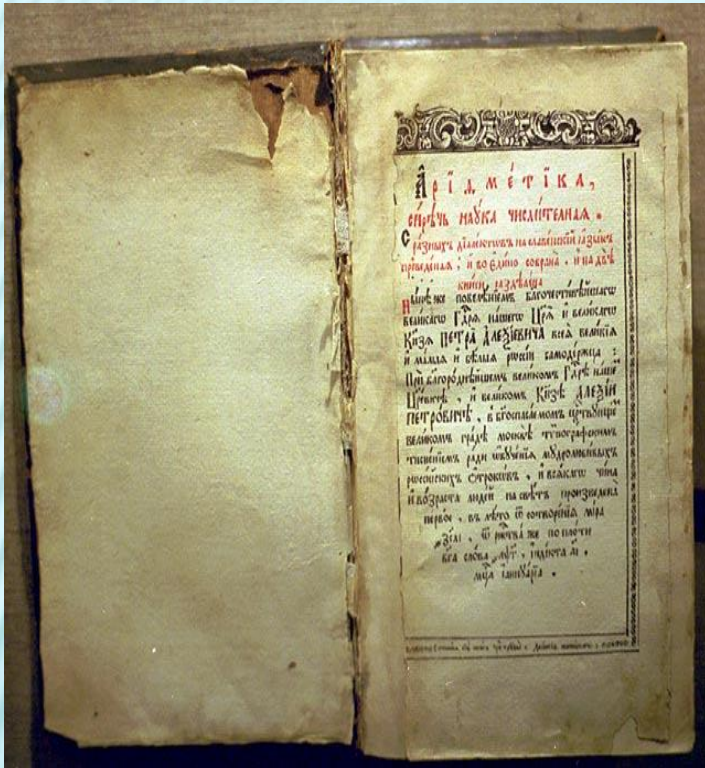 А҆риѳме́тїка,
си́рѣчь наꙋ́ка числи́телная.
С̾ разныхъ дїалектѡвъ на славенскїй ꙗзыкъ
преведеная, и во едино собрана, и на двѣ
книги раздѣлена
Нынѣ же повелѣнїемъ благочестивѣйшагѡ
великагѡ Гдⷭ҇рѧ нашегѡ Црѧ҃ и великагѡ
Кнⷾ҇зѧ ПЕТРА АЛЕѮїЕВИЧА всеѧ великїѧ
и малыѧ и бѣлыѧ рѡссїи самодержца:
При благороднѣйшемъ великомъ Гдⷭ҇рѣ нашемъ
Цр҃евичѣ, и великомъ Кнⷾ҇зѣ АЛЕѮїИ
ПЕТРОВИЧѣ, в бг҃оспасаемомъ црⷭ҇твꙋющемъ
великомъ градѣ москвѣ тѵпографскимъ
тисненїемъ ради ѡбꙋченїѧ мꙋдролюбивыхъ
рѡссїйскихъ ѻтрокѡвъ, и всѧкагѡ чина
и возраста людей на свѣтъ произведена
первое, въ лѣто ѿ сотворенїѧ мїра
҂зсаі, ѿ рождⷭ҇тва же по плоти
бг҃а слова ҂аѱг, індїкта аі.
мцⷭ҇а їаннꙋарїа.